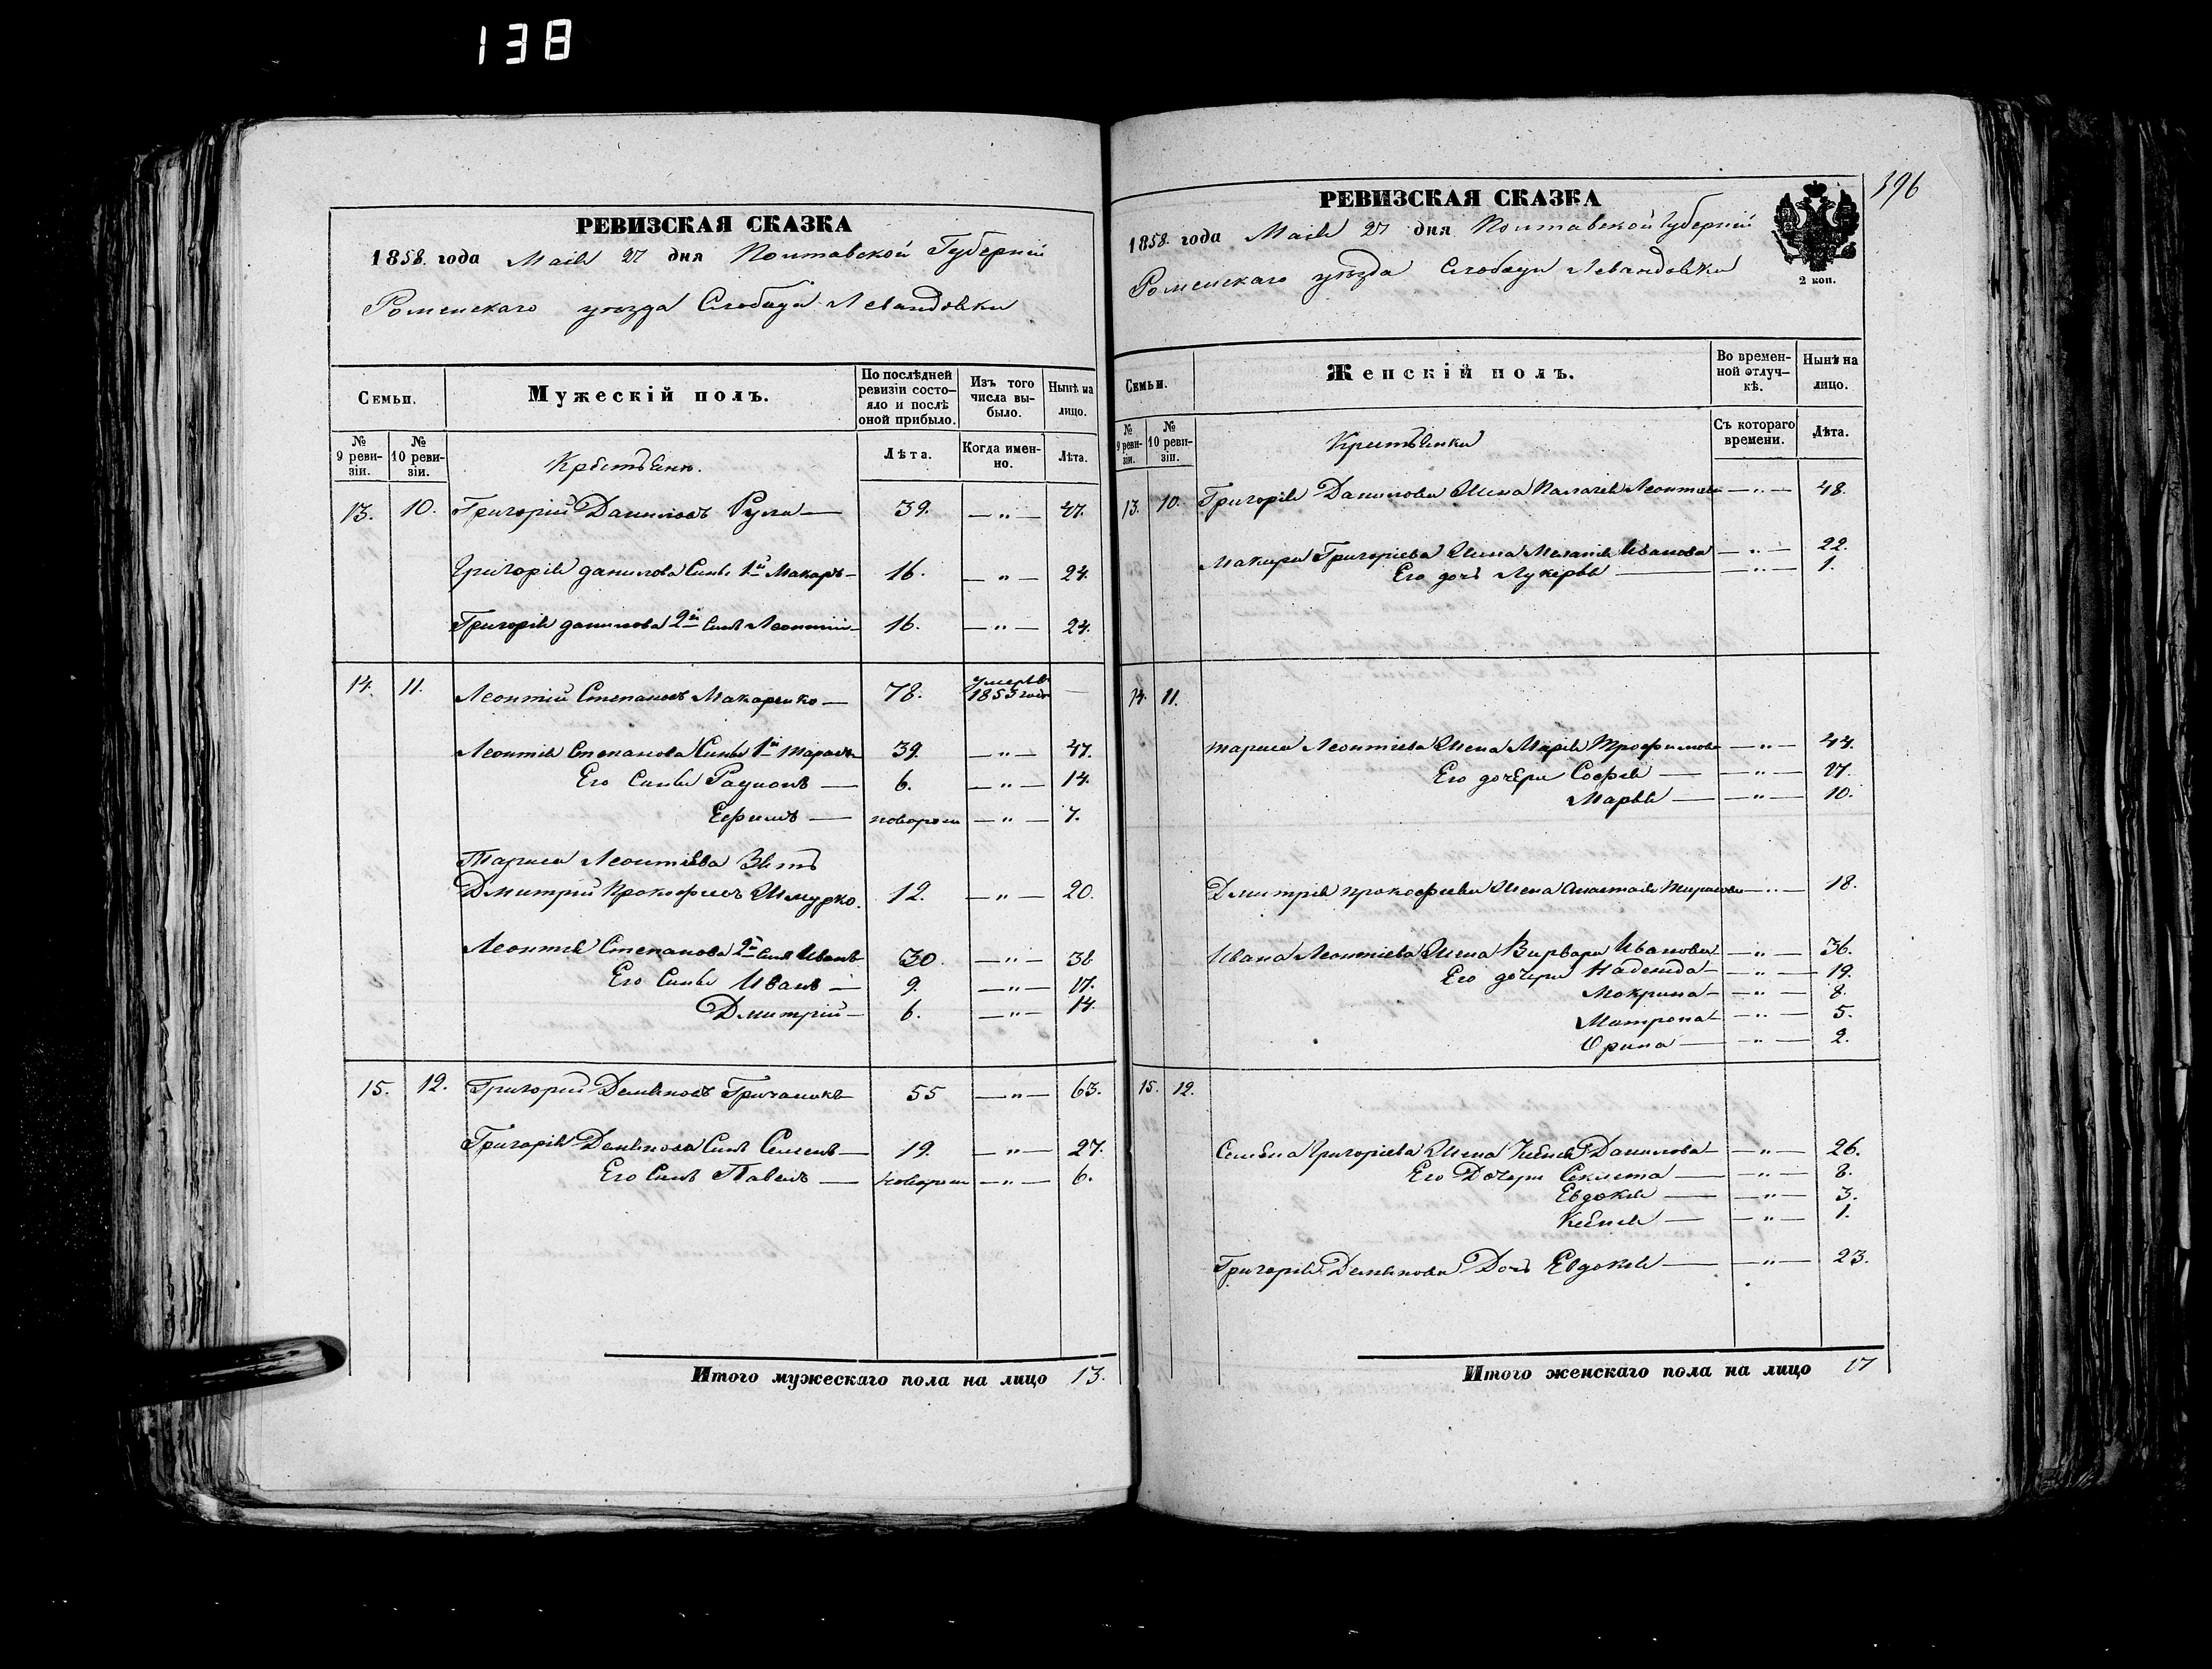 138
РЕВИЗСКАЯ СКАЗКА
1858. года Маія 27 дня Полтавской Губерніи
Роменскаго уѣзда Слободы Левандовки
Семьи.
Мужескій полъ.
По послѣдней ревизіи состояло и послѣ оной прибыло.
Изъ того числа выбыло.
Нынѣ на лицо.
№ 9 ревизіи.
№ 10 ревизіи.
Крестьяне.
Лѣта.
Когда именно.
Лѣта.
13. 10. Григорій Даниловъ Рула — 39. — " — 47.
Григорія Данилова Сынъ 1й Макаръ — 16. — " — 24.
Григорія Данилова 2й Сынъ Леонтій — 16. — " — 24.
14. 11. Леонтій Степановъ Макаренко — 78. умеръ въ 1853 годѣ —
Леонтія Степанова Сынъ 1й Тарасъ 39. — " — 47.
Его Сыны Радионъ — 6. — " — 14.
Ефимъ — новорож — " — 7.
Тараса Леонтіева Зять
Дмитрій Прокофіевъ Шмурко. 12. — " — 20.
Леонтія Степанова 2й Сынъ Иванъ 30. — " — 38
Его Сыны Иванъ — 9. — " — 17.
Дмитрій — 6. — " — 14.
15. 12. Григорій Демяновъ Гричаникъ 55 — " — 63.
Григорія Демянова Сынъ Семенъ — 19. — " — 27.
Его Сынъ Павелъ — новорож — " — 6.
Итого мужескаго пола на лицо 13.
396
РЕВИЗСКАЯ СКАЗКА
1858. года Маія 27 дня Полтавской Губерніи
Роменскаго уѣзда Слободы Левандовки
2 коп.
Семьи.
Женскій полъ.
Во временной отлучкѣ.
Нынѣ на лицо.
№ 9 ревизіи.
№ 10 ревизіи.
Крестьянки
Съ котораго времени.
Лѣта.
13. 10. Григорія Данилова Жена Палагія Леонтіева — " — 48.
Макара Григоріева Жена Меланія Иванова — " — 22.
Его дочь Лукерья — " — 1.
14. 11.
Тараса Леонтіева Жена Марія Трофимова — " — 44.
Его дочери Софія — — " — 17.
Марья — — " — 10.
Дмитрія Прокофіева Жена Анастасія Тарасова — " — 18.
Ивана Леонтіева Жена Варвара Иванова — " — 36.
Его дочери Надежда — — " — 19.
Мокрина — — " — 8.
Матрона — — " — 5.
Орина — — " — 2.
15. 12.
Семена Григоріева Жена Ксенія Данилова — " — 26.
Его Дочери Секлета — — " — 8.
Евдокія — — " — 3.
Ксенія — — " — 1.
Григорія Демянова Дочь Евдокія — — " — 23.
Итого женскаго пола на лицо 17